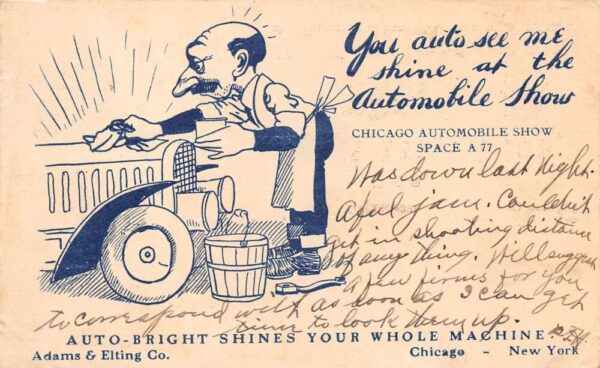 You auto see me
shine at the
Automobile Show
CHICAGO AUTOMOBILE SHOW
SPACE A 77
Was down last night.
Aful jam. Couldn't
get in shooting distance
of any thing. Will suggest
a few firms for you
to correspond with as soon as I can get
time to look them up.
AUTO-BRIGHT SHINES YOUR WHOLE MACHINE.
Adams & Elting Co. Chicago - New York